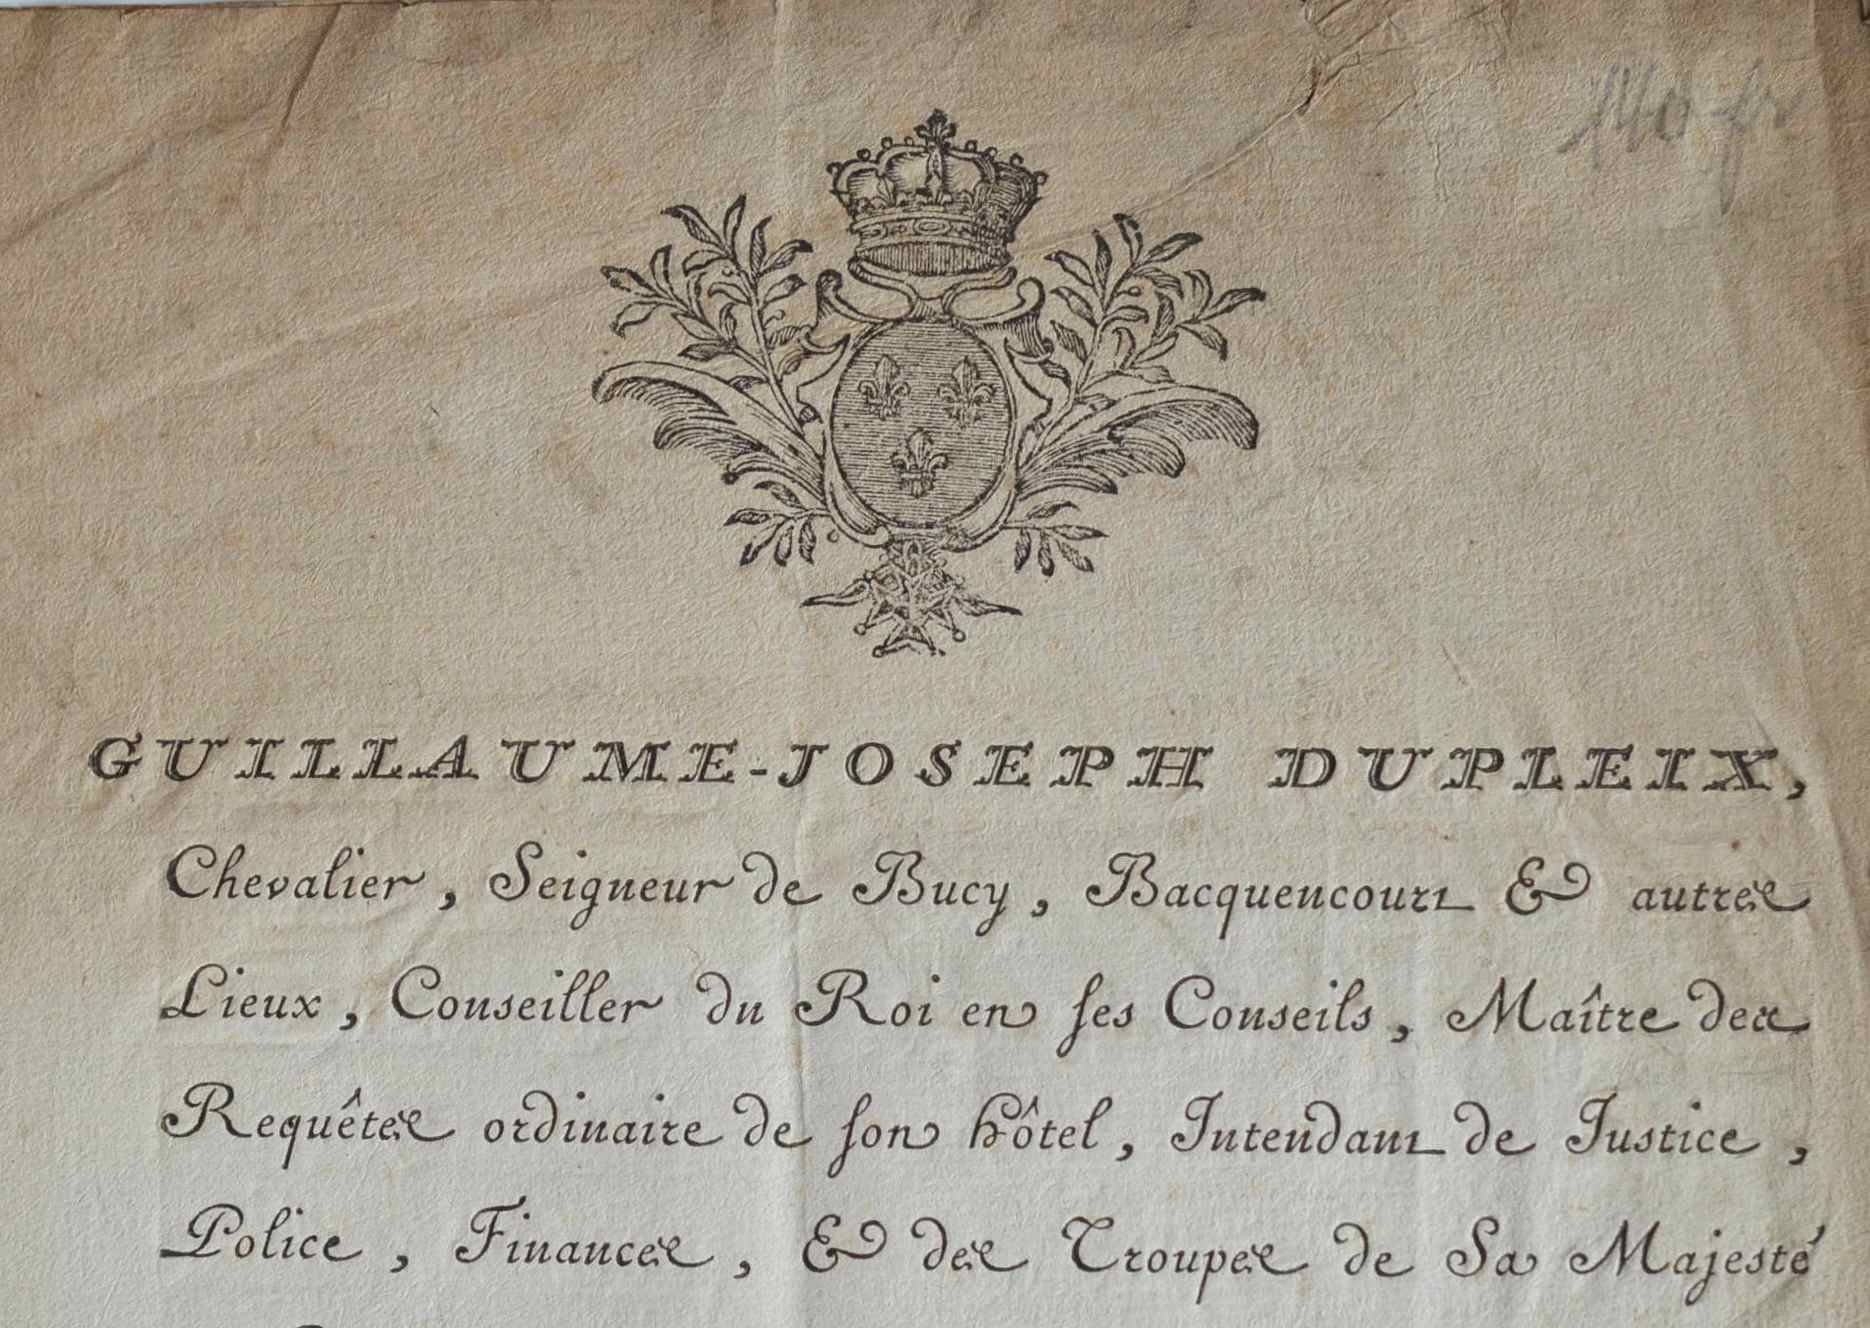 GUILLAUME-JOSEPH DUPLEIX,
Chevalier, Seigneur de Bucy, Bacquencourt & autres
Lieux, Conseiller du Roi en ses Conseils, Maître des
Requêtes ordinaire de son hôtel, Intendant de Justice,
Police, Finances, & des Troupes de Sa Majesté